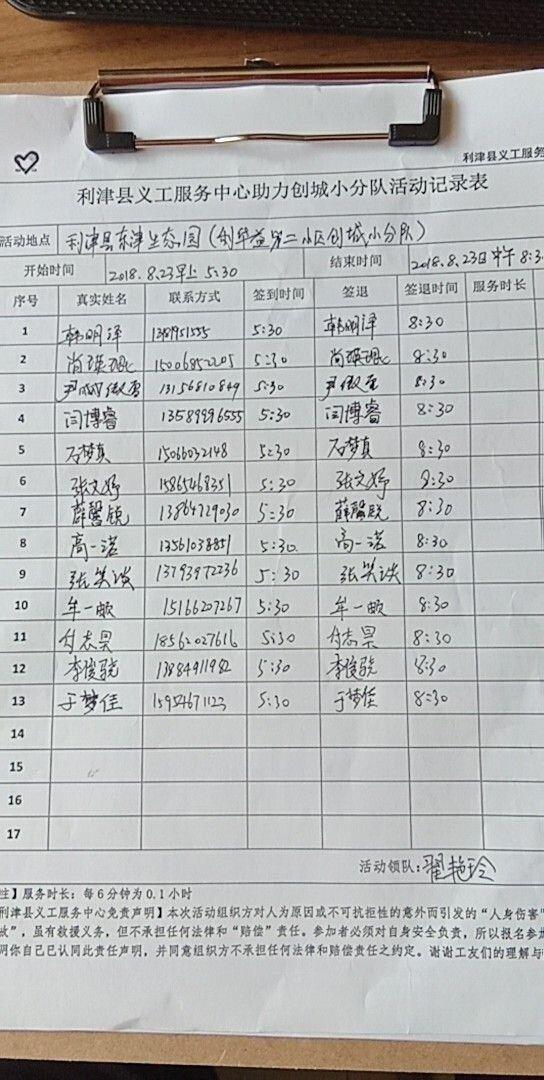 利津县义工服务
利津县义工服务中心助力创城小分队活动记录表
活动地点 利津县东津生态园(利华益第二小区创城小分队)
开始时间 2018.8.23早上5:30 结束时间 2018.8.23日 8:3
序号 真实姓名 联系方式 签到时间 签退 签退时间 服务时长
1 韩明泽 5:30 韩明泽 8:30
2 尚瑛琨 15006852205 5:30 尚瑛琨 8:30
3 13156810849 5:30 8:30
4 闫博睿 13589996555 5:30 闫博睿 8:30
5 石梦真 15066032148 5:30 石梦真 8:30
6 张文婷 15865468351 5:30 张文婷 8:30
7 薛馨锐 13864729030 5:30 薛馨锐 8:30
8 高一诺 13561038851 5:30 高一诺 8:30
9 张笑谈 13793972236 5:30 张笑谈 8:30
10 牟一 15166207267 5:30 牟一 8:30
11 付志昊 18562027616 5:30 付志昊 8:30
12 李俊骁 13884911982 5:30 李俊骁 8:30
13 于梦佳 15954671123 5:30 于梦佳 8:30
14
15
16
17
活动领队:翟艳玲
注】服务时长:每6分钟为0.1小时
利津县义工服务中心免责声明】本次活动组织方对人为原因或不可抗拒性的意外而引发的“人身伤害
故”,虽有救援义务,但不承担任何法律和“赔偿”责任。参加者必须对自身安全负责,所以报名参加
同你自己已认同此责任声明,并同意组织方不承担任何法律和赔偿责任之约定。谢谢工友们的理解与